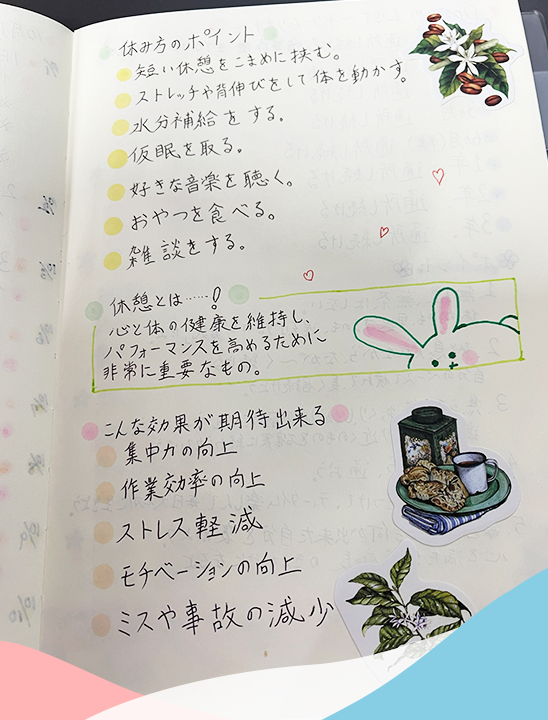 休み方のポイント
短い休憩をこまめに挟む。
ストレッチや背伸びをして体を動かす。
水分補給をする。
仮眠を取る。
好きな音楽を聴く。
おやつを食べる。
雑談をする。
休憩とは……!
心と体の健康を維持し、
パフォーマンスを高めるために
非常に重要なもの。
こんな効果が期待出来る
集中力の向上
作業効率の向上
ストレス軽減
モチベーションの向上
ミスや事故の減少